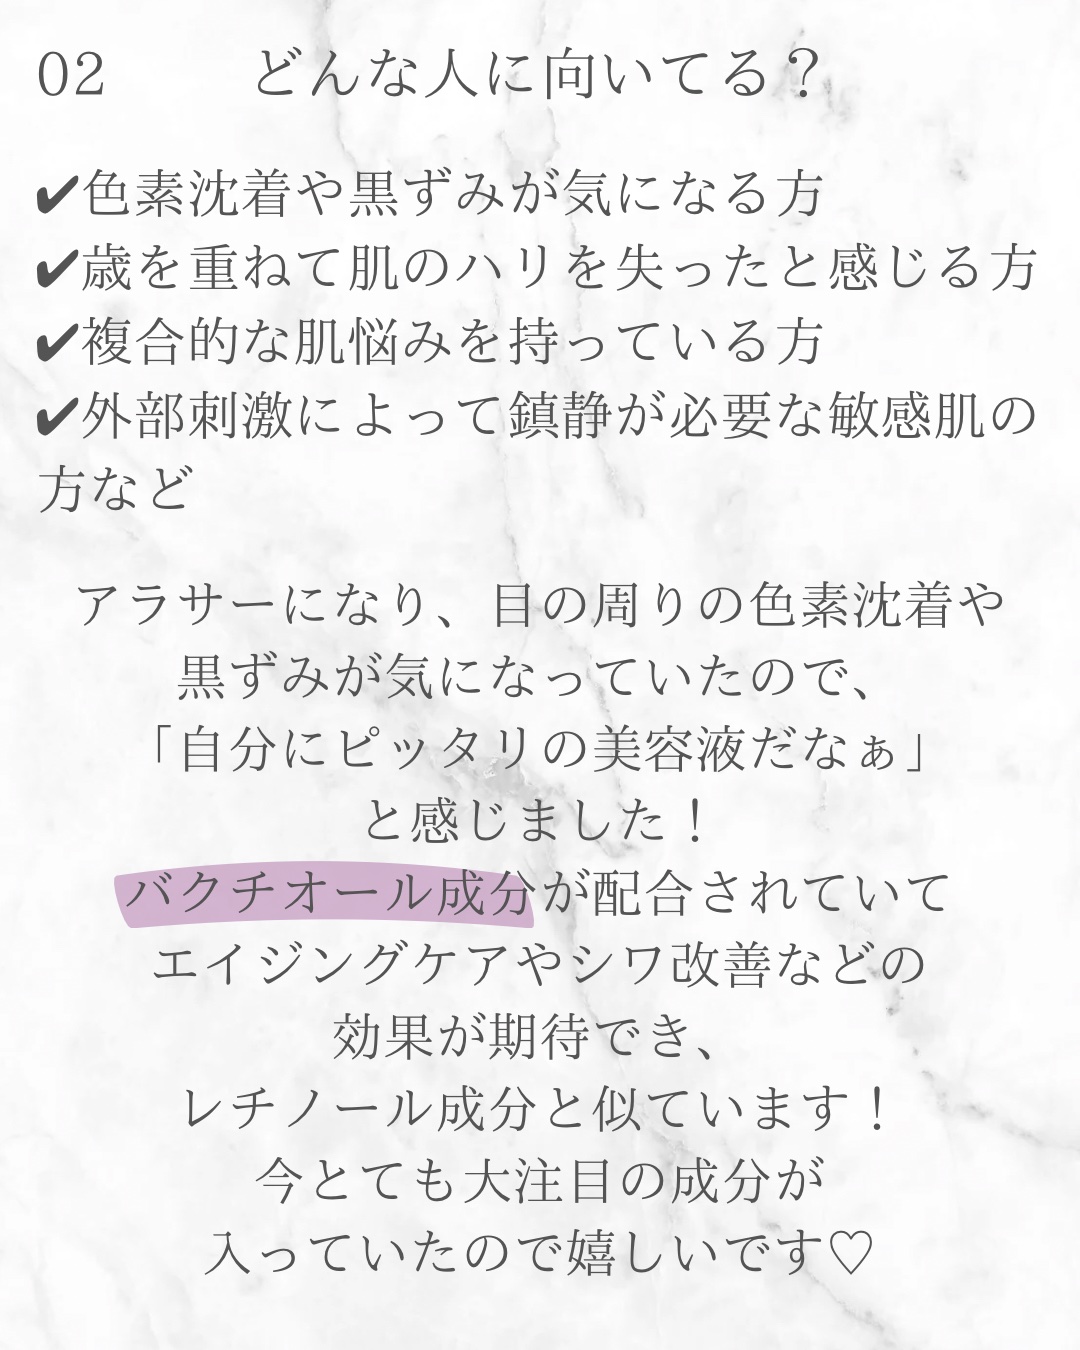 02 どんな人に向いてる？
✔色素沈着や黒ずみが気になる方
✔歳を重ねて肌のハリを失ったと感じる方
✔複合的な肌悩みを持っている方
✔外部刺激によって鎮静が必要な敏感肌の
方など
アラサーになり、目の周りの色素沈着や
黒ずみが気になっていたので、
「自分にピッタリの美容液だなぁ」
と感じました！
バクチオール成分が配合されていて
エイジングケアやシワ改善などの
効果が期待でき、
レチノール成分と似ています！
今とても大注目の成分が
入っていたので嬉しいです♡